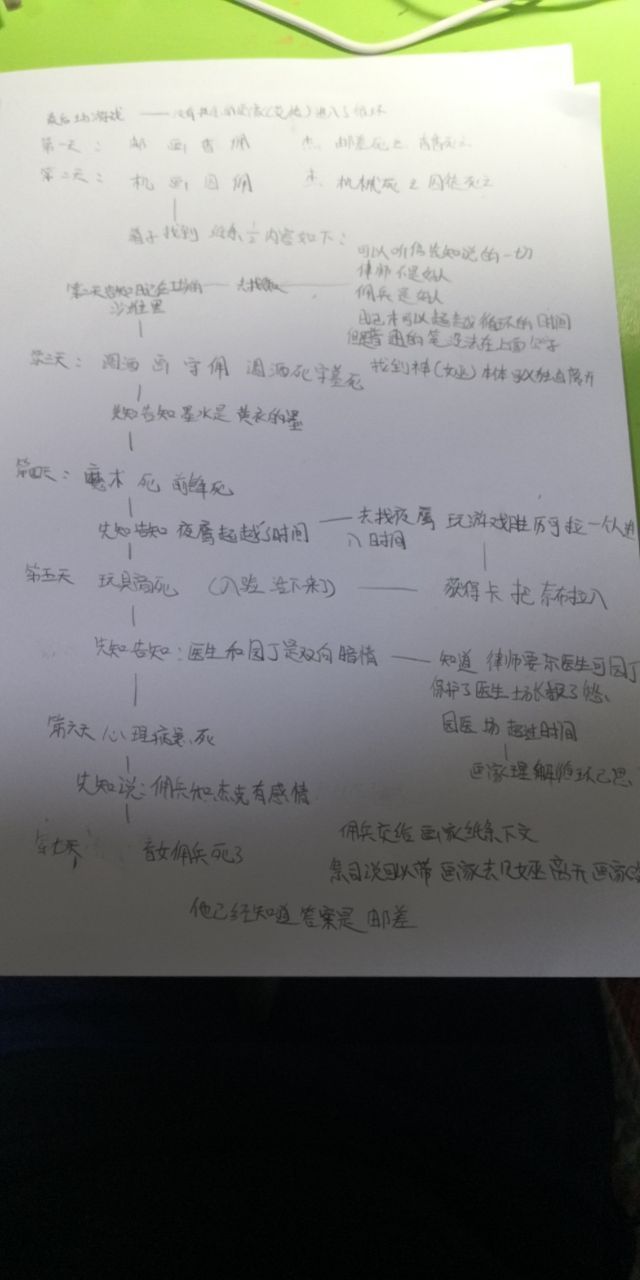 最后一场游戏 —— 没有 进入了循环
第一天： 邮 画 盲 佣 杰 邮差死亡
第二天： 机 画 囚 佣 杰 机械死亡 囚徒死亡
箱子找到 纸条1/2 内容如下：
可以听信先知说的一切
律师不是好人
第二天告知日记在 —— 去找 ——
佣兵是好人
沙堆里
日记本可以超越循环的时间
但普通的笔没法在上面写字
第三天： 调酒 画 守 佣 调酒死 死
找到神(女巫)本体可以 离开
先知告知墨水是黄衣的墨
第四天： 魔术 死 前锋死
先知告知 夜魇超越了时间 —— 去找夜魇 玩游戏胜历可拉一个人进
入时间
第五天 玩具商死 (入殓 活下来了) —— 获得卡 把奈布拉入
先知告知：医生和园丁是双向暗情 —— 知道 律师要杀医生可园丁
保护了医生
园医 超越时间
第六天 心理病患 死
画家理解循环
先知说：佣兵和杰克有感情
第七天 盲女佣兵死了
佣兵交给画家纸条下文
条目说可以带 画家去 女巫 离开 画家
他已经知道答案是 邮差